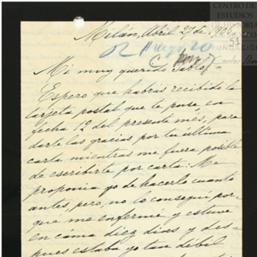 CENTRO DE
ESTUDIOS
Milán, Abril 27 de 19
Mi muy querido
Espero que habras recibido la
tarjeta postal que te puse con
fecha 12 del presente mes, para
darte las gracias por tu última
carta mientras me fuera posible
de escribirte por carta. Me
proponia yo de hacerlo cuanto
antes pero, no lo conseguí por-
que me enfermé y estuve
en cama diez dias y des-
pues estaba yo tan debil